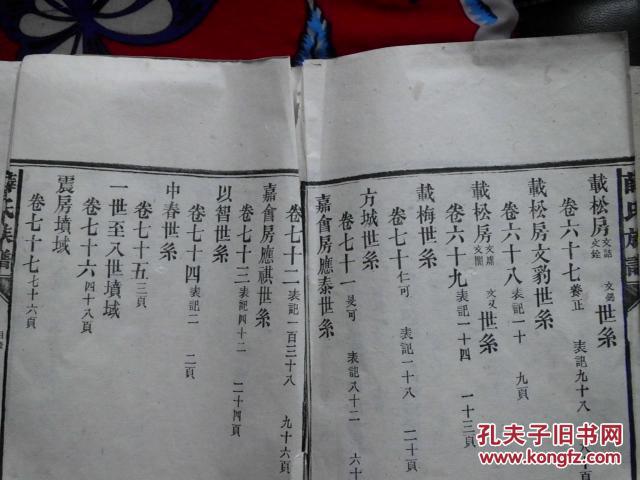 薛氏族譜
載松房 文話 文銓 文弼 世系
卷六十七 養正 表記九十八 八十頁
載松房文豹世系
卷六十八 表記一十 九頁
載松房 文虎 文又 世系
卷六十九 表記一十四 一十三頁
載梅世系
卷七十 仁可 表記一十八 二十頁
方城世系
卷七十一 是可 表記八十二 六十
嘉會房應泰世系
卷七十二 表記一百三十八 九十六頁
嘉會房應祺世系
卷七十三 表記四十二 二十四頁
以智世系
卷七十四 表記二 二頁
中春世系
卷七十五 三頁
一世至八世墳域
卷七十六 四十八頁
震房墳域
卷七十七 七十六頁
薛氏族譜
孔夫子旧书网
www.kongfz.com